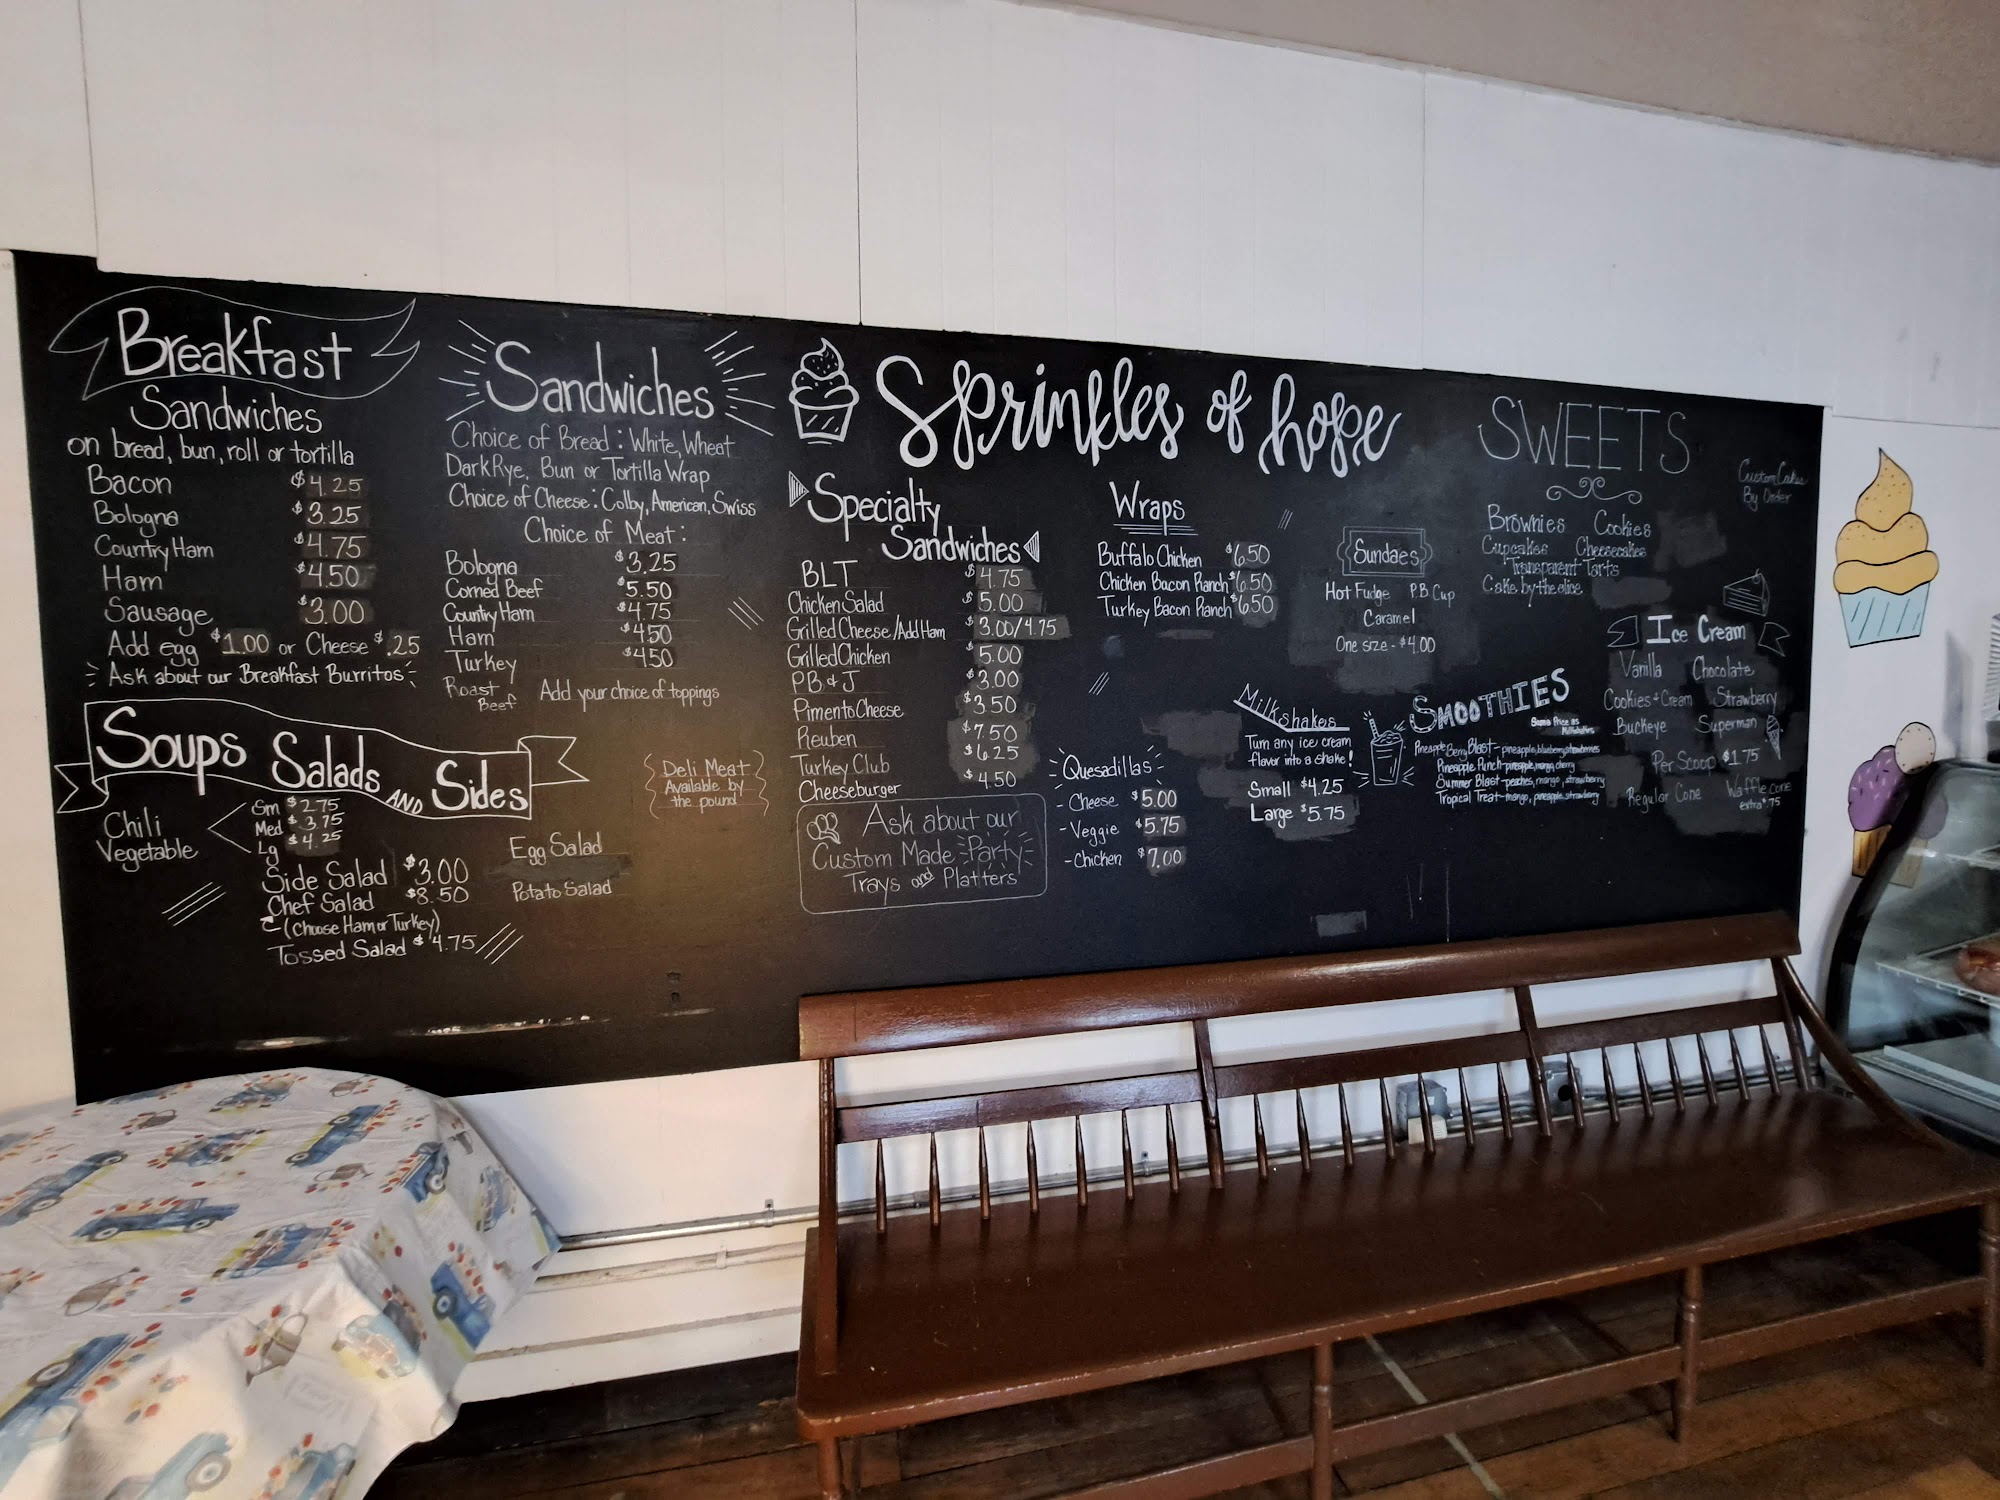 Breakfast
Sandwiches
on bread, bun, roll or tortilla
Bacon $4.25
Bologna $3.25
Country Ham $4.75
Ham $4.50
Sausage $3.00
Add egg $1.00 or Cheese $.25
Ask about our Breakfast Burritos
Soups Salads AND Sides
Chili
Vegetable
Sm $2.75
Med $3.75
Lg $4.25
Side Salad $3.00
Chef Salad $8.50
(Choose Ham or Turkey)
Tossed Salad $4.75
Egg Salad
Potato Salad
Sandwiches
Choice of Bread: White, Wheat
Dark Rye, Bun or Tortilla Wrap
Choice of Cheese: Colby, American, Swiss
Choice of Meat:
Bologna $3.25
Corned Beef $5.50
Country Ham $4.75
Ham $4.50
Turkey $4.50
Roast
Beef
Add your choice of toppings
Deli Meat
Available by
the pound
Sprinkles of hope
Specialty
Sandwiches
BLT $4.75
Chicken Salad $5.00
Grilled Cheese/Add Ham $3.00/4.75
Grilled Chicken $5.00
P.B & J $3.00
Pimento Cheese $3.50
Reuben $7.50
Turkey Club $6.25
Cheeseburger $4.50
Ask about our
Custom Made Party
Trays and Platters
Wraps
Buffalo Chicken $6.50
Chicken Bacon Ranch $6.50
Turkey Bacon Ranch $6.50
Quesadillas
- Cheese $5.00
- Veggie $5.75
- Chicken $7.00
Sundaes
Hot Fudge P.B. Cup
Caramel
One size - $4.00
Milkshakes
Turn any ice cream
flavor into a shake!
Small $4.25
Large $5.75
SMOOTHIES
Same Price as
Milkshakes
Pineapple Berry Blast - pineapple, blueberry, strawberries
Pineapple Punch - pineapple, mango, cherry
Summer Blast - peaches, mango, strawberry
Tropical Treat - mango, pineapple, strawberry
SWEETS
Custom Cakes
By Order
Brownies Cookies
Cupcakes Cheesecakes
Transparent Tarts
Cake by the slice
Ice Cream
Vanilla Chocolate
Cookies + Cream Strawberry
Buckeye Superman
Per Scoop $1.75
Regular Cone
Waffle cone
extra $.75